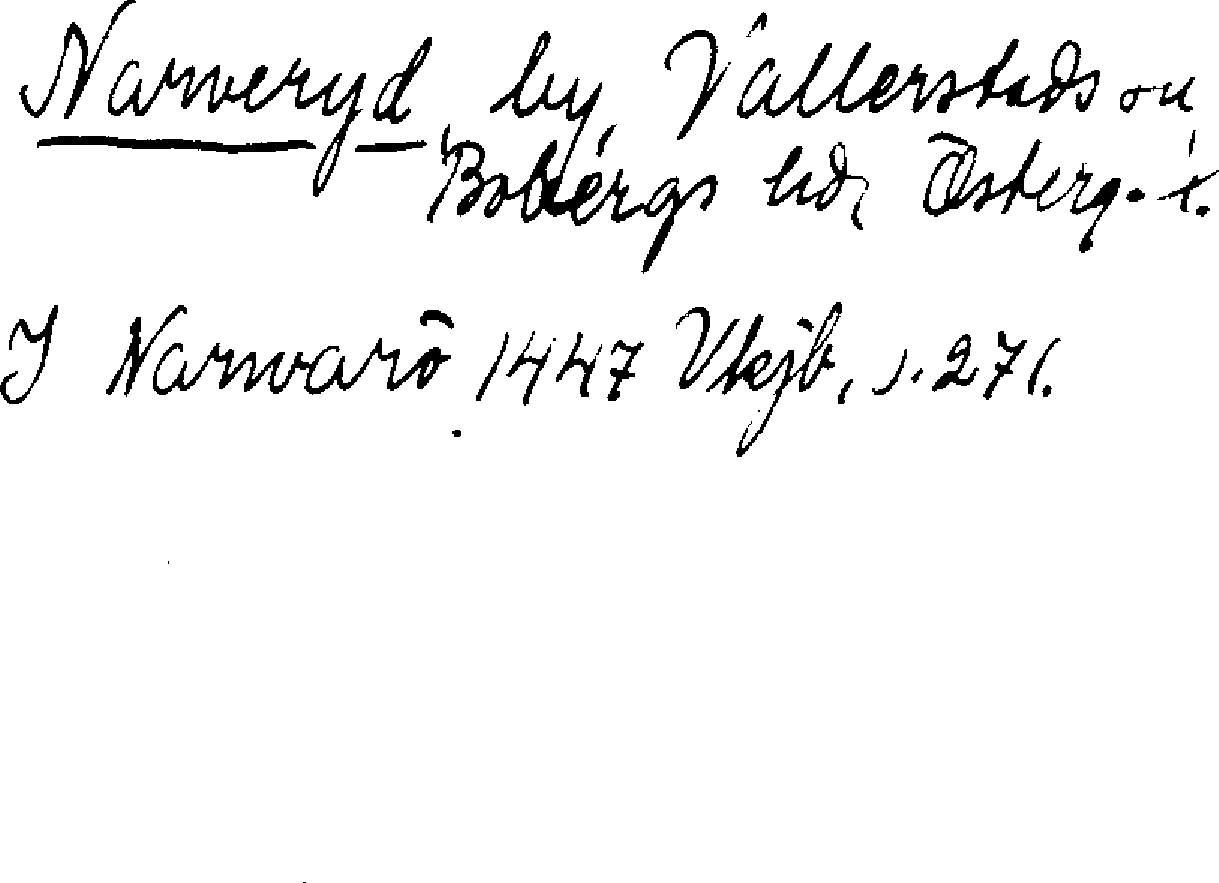 Narveryd, by, Vallerstads sn
Bobergs hd, Österg. l.
I Narvarö 1447 Vtkjb, s. 271.